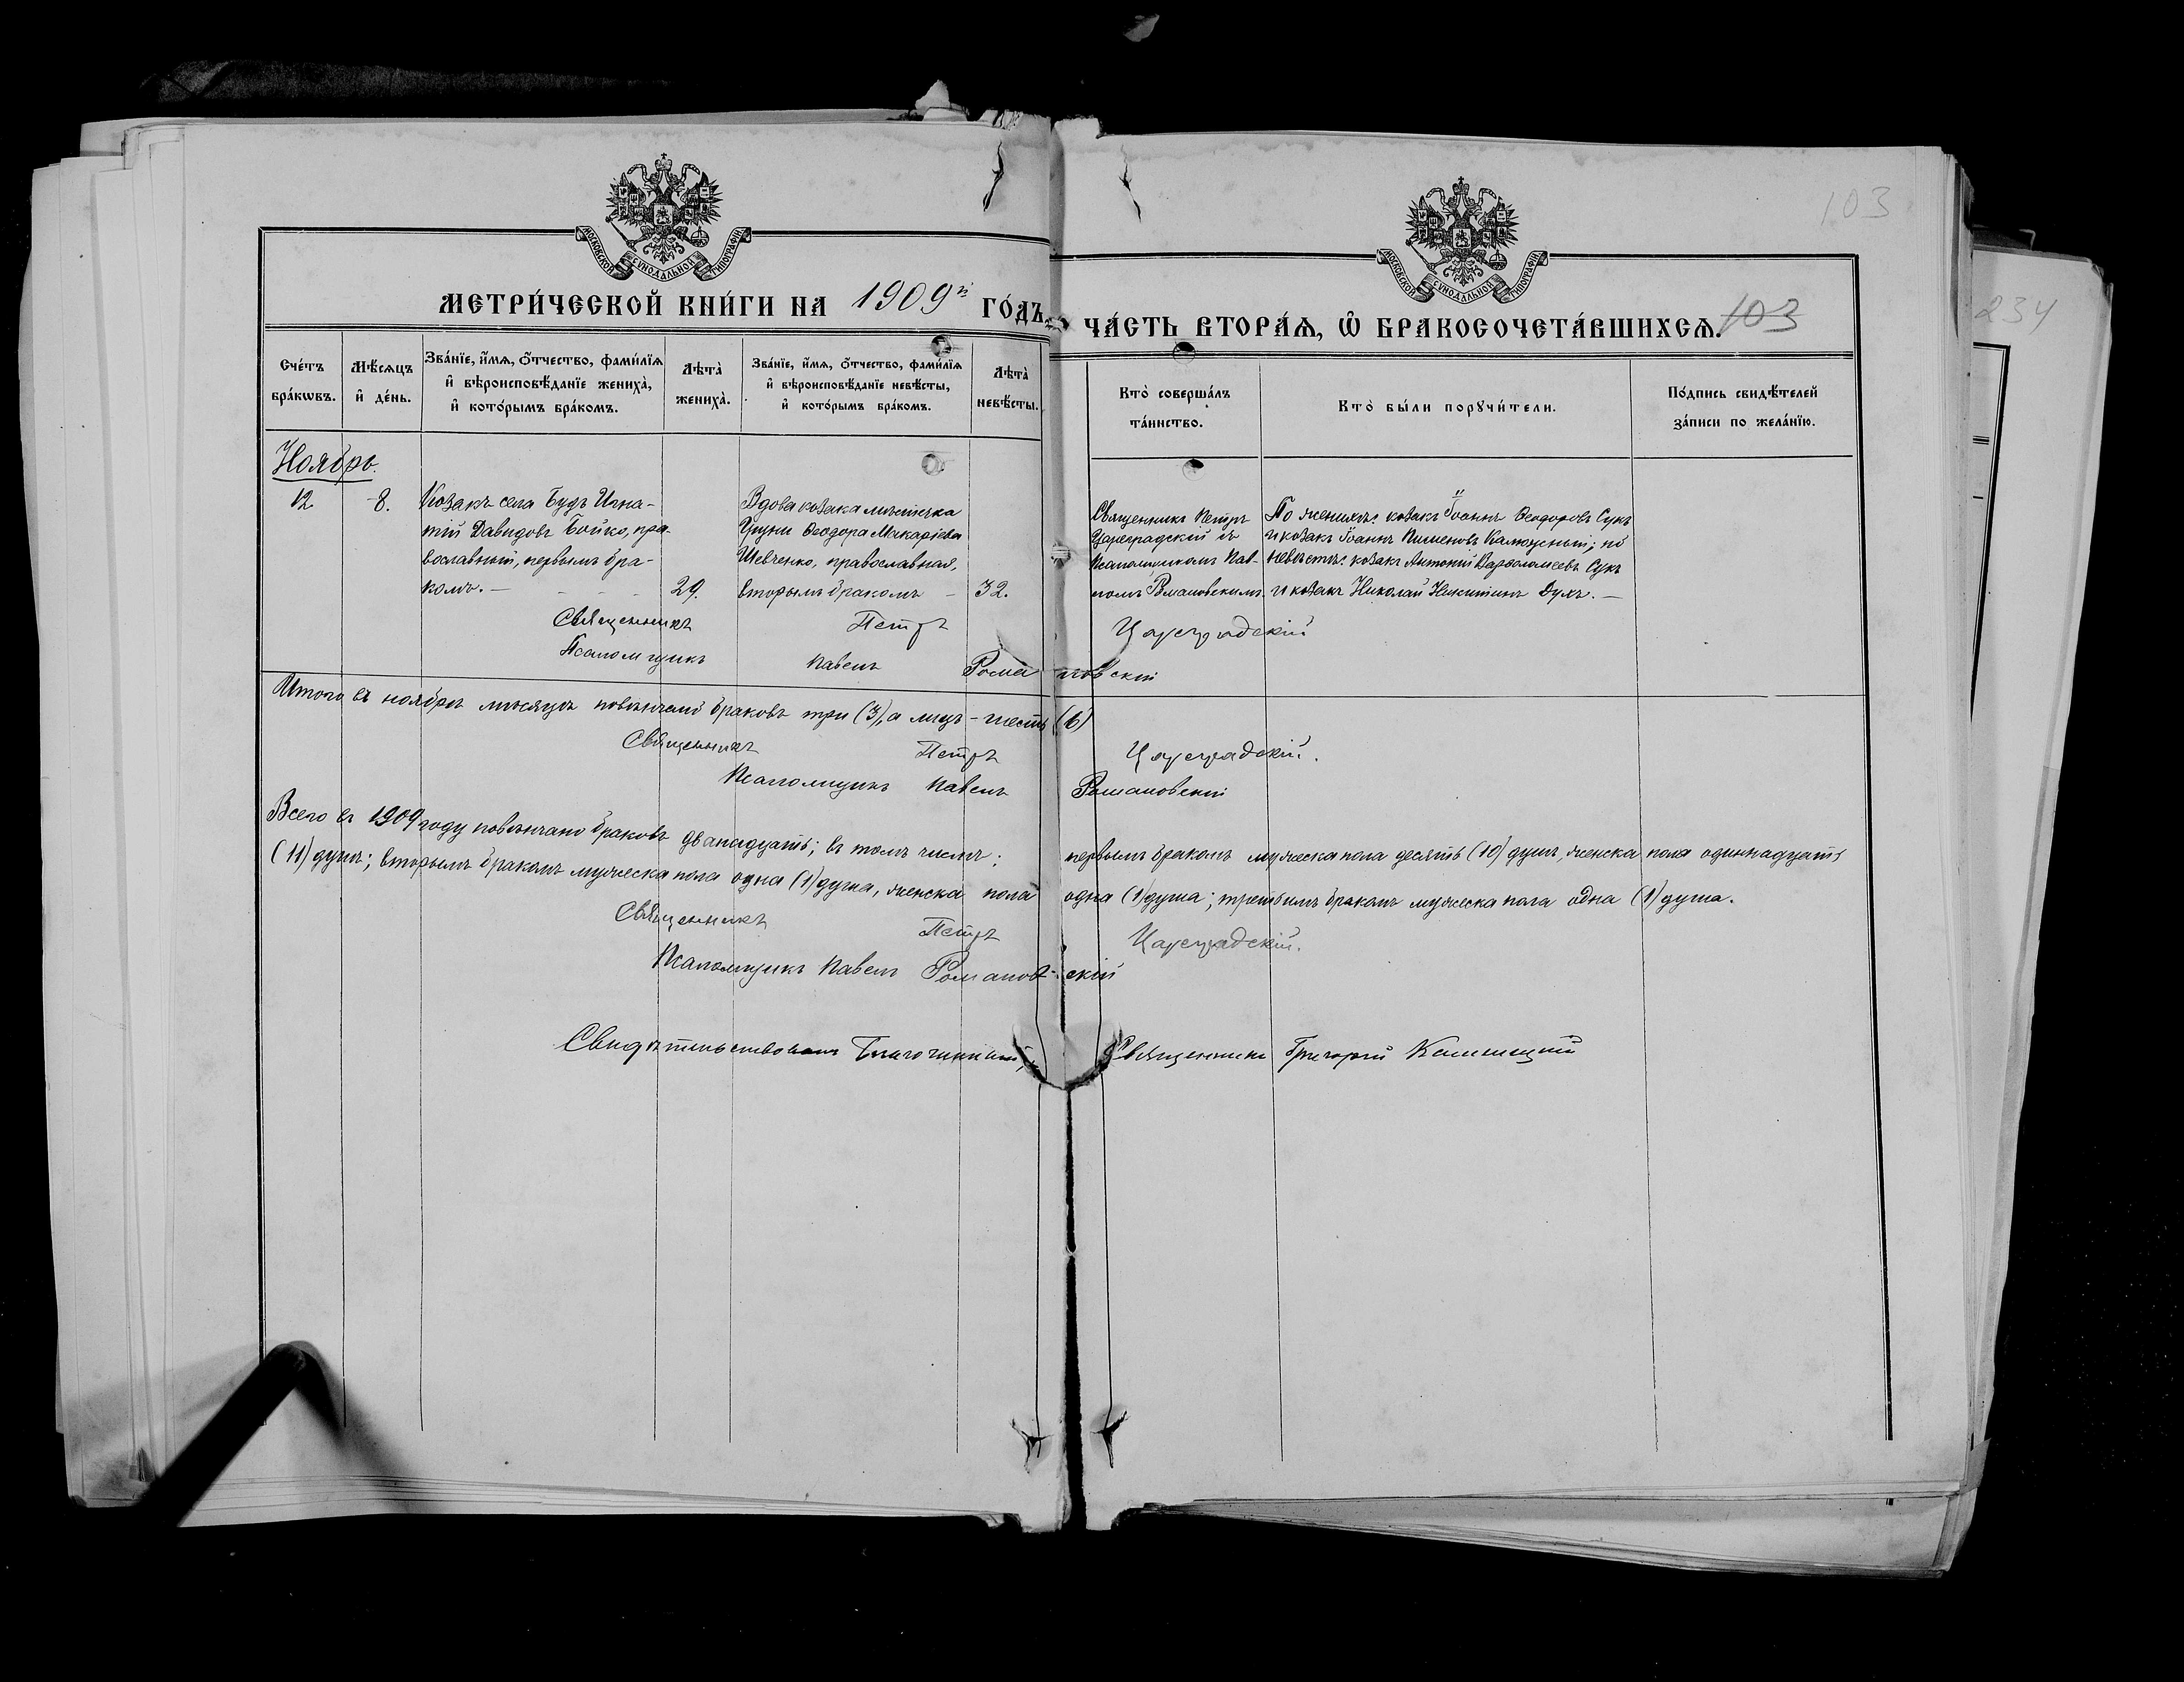 103
234
МОСКОВСКОЙ СѴНОДАЛЬНОЙ ТИПОГРАФІИ
МОСКОВСКОЙ СѴНОДАЛЬНОЙ ТИПОГРАФІИ
МЕТРИ́ЧЕСКОЙ КНИ́ГИ НА 1909й ГО́ДЪ,
ЧА́СТЬ ВТОРА́Ѧ, Ѡ҆ БРАКОСОЧЕТА́ВШИХСѦ. 103
Сче́тъ
бра́кѡвъ.
Мѣ́сѧцъ
и҆ де́нь.
Зва́нїе, и҆́мѧ, ѻ҆́тчество, фами́лїѧ
и҆ вѣроисповѣ́данїе жениха̀,
и҆ кото́рымъ бра́комъ.
Лѣта̀
жениха̀.
Зва́нїе, и҆́мѧ, ѻ҆́тчество, фами́лїѧ
и҆ вѣроисповѣ́данїе невѣ́сты,
и҆ кото́рымъ бра́комъ.
Лѣта̀
невѣ́сты.
Кто̀ соверша́лъ
та́инство.
Кто̀ бы́ли порꙋчи́тели.
По́дпись свидѣ́телей
за́писи по жела́нїю.
Ноябрь.
12
8.
Козакъ села Будъ Игна-
тій Давидовъ Бойко, пра-
вославный, первымъ бра-
комъ. —
29.
Вдова козака мѣстечка
Ѳеодора Макаріева
Шевченко, православная,
вторымъ бракомъ —
32.
Священникъ Петръ
Цареградскій съ
Псаломщикомъ Пав-
ломъ Романовскимъ.
По женихѣ: козакъ Іоаннъ Ѳеодоровъ Сукъ
и козакъ Іоаннъ Пименовъ Калюжный; по
невѣстѣ: козакъ Антоній Варѳоломеевъ Сукъ
и козакъ Николай Никитинъ Духъ. —
Священникъ Петръ Цареградскій
Псаломщикъ Павелъ Романовскій
Итого въ ноябрѣ мѣсяцѣ повѣнчано браковъ три (3), а лицъ - шесть (6)
Священникъ Петръ Цареградскій.
Псаломщикъ Павелъ Романовскій
Всего въ 1909 году повѣнчано браковъ двѣнадцать; въ томъ числѣ: первымъ бракомъ мужеска пола десять (10) душъ, женска пола одиннадцать
(11) душъ; вторымъ бракомъ мужеска пола одна (1) душа, женска пола одна (1) душа; третьимъ бракомъ мужеска пола одна (1) душа.
Священникъ Петръ Цареградскій.
Псаломщикъ Павелъ Романов-скій
Свидѣтельствовалъ Благочинный, Священникъ Григорій